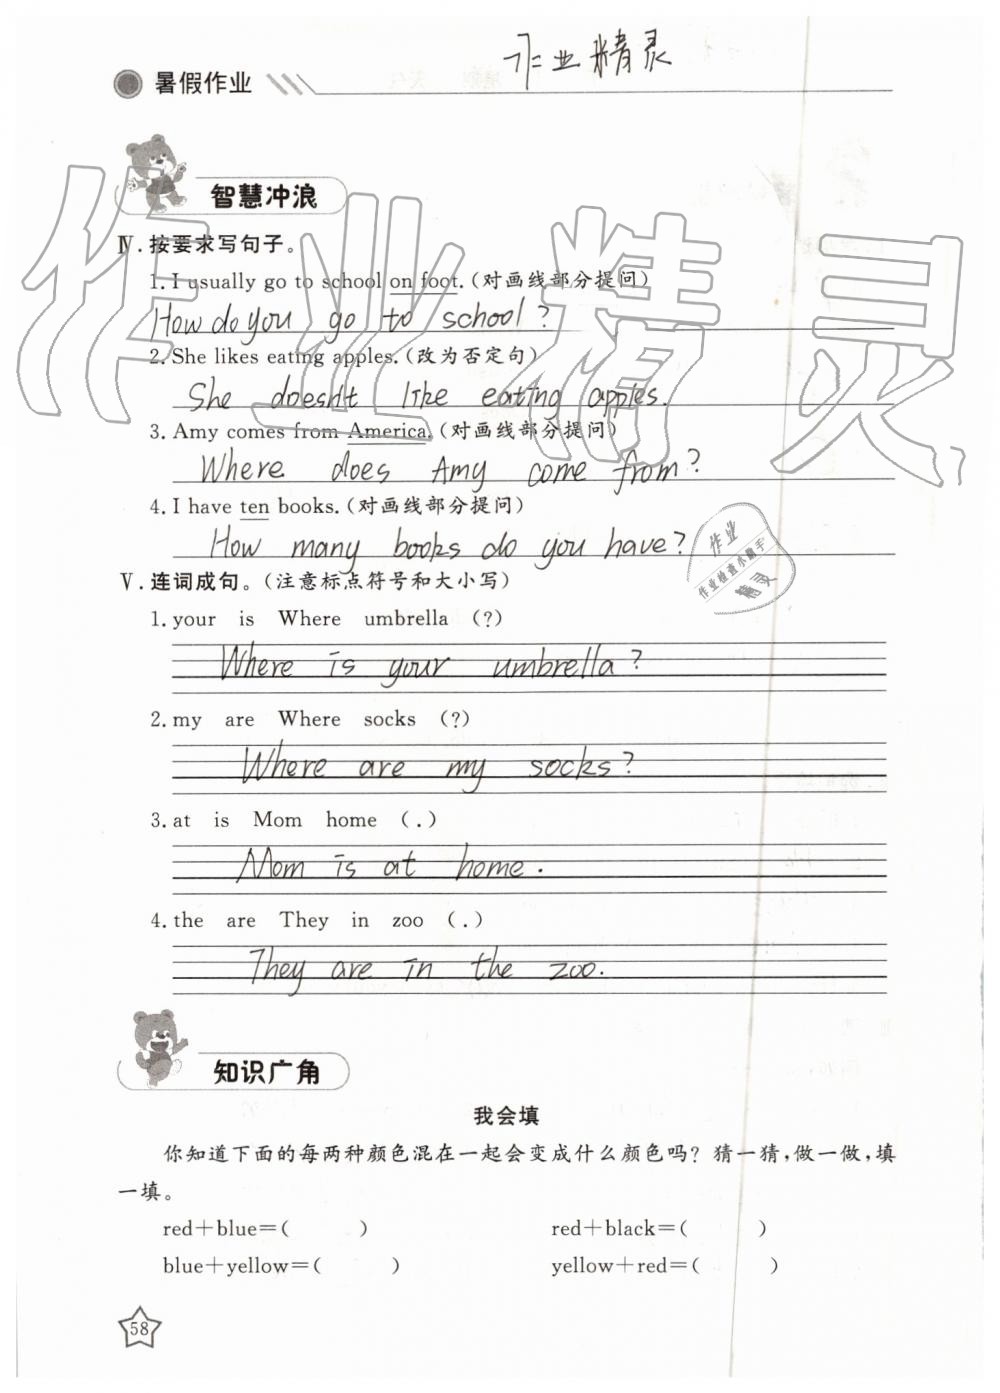 作业精灵
暑假作业
智慧冲浪
Ⅳ.按要求写句子。
1. I usually go to school on foot.(对画线部分提问)
How do you go to school?
2. She likes eating apples.(改为否定句)
She doesn't like eating apples.
3. Amy comes from America.(对画线部分提问)
Where does Amy come from?
4. I have ten books.(对画线部分提问)
How many books do you have?
Ⅴ.连词成句。(注意标点符号和大小写)
1. your is Where umbrella (?)
Where is your umbrella?
2. my are Where socks (?)
Where are my socks?
3. at is Mom home (.)
Mom is at home.
4. the are They in zoo (.)
They are in the zoo.
知识广角
我会填
你知道下面的每两种颜色混在一起会变成什么颜色吗?猜一猜,做一做,填
一填。
red+blue=( ) red+black=( )
blue+yellow=( ) yellow+red=( )
58
作业精灵
作业
作业检查小助手
精灵